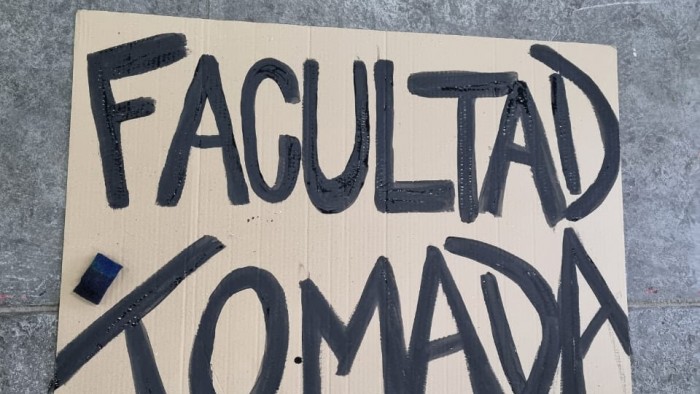 FACULTAD
TOMADA